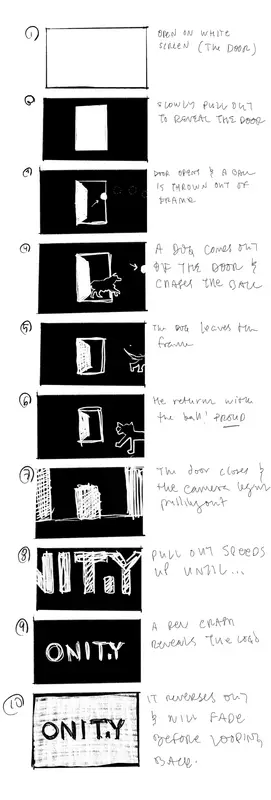 1
OPEN ON WHITE
SCREEN (THE DOOR)
2
SLOWLY PULL OUT
TO REVEAL THE DOOR
3
DOOR OPENS & A BALL
IS THROWN OUT OF
FRAME
4
A DOG COMES OUT
OF THE DOOR &
CHASES THE BALL
5
The DOG leaves the
frame
6
He returns with
the ball! PROUD
7
The door closes &
the camera begins
pulling out
8
NIT.Y
PULL OUT SPEEDS
UP UNTIL...
9
ONIT.Y
A NEW
REVEALS THE LOGO
10
ONIT.Y
IT REVERSES OUT
& WILL FADE
BEFORE LOOPING
BACK.